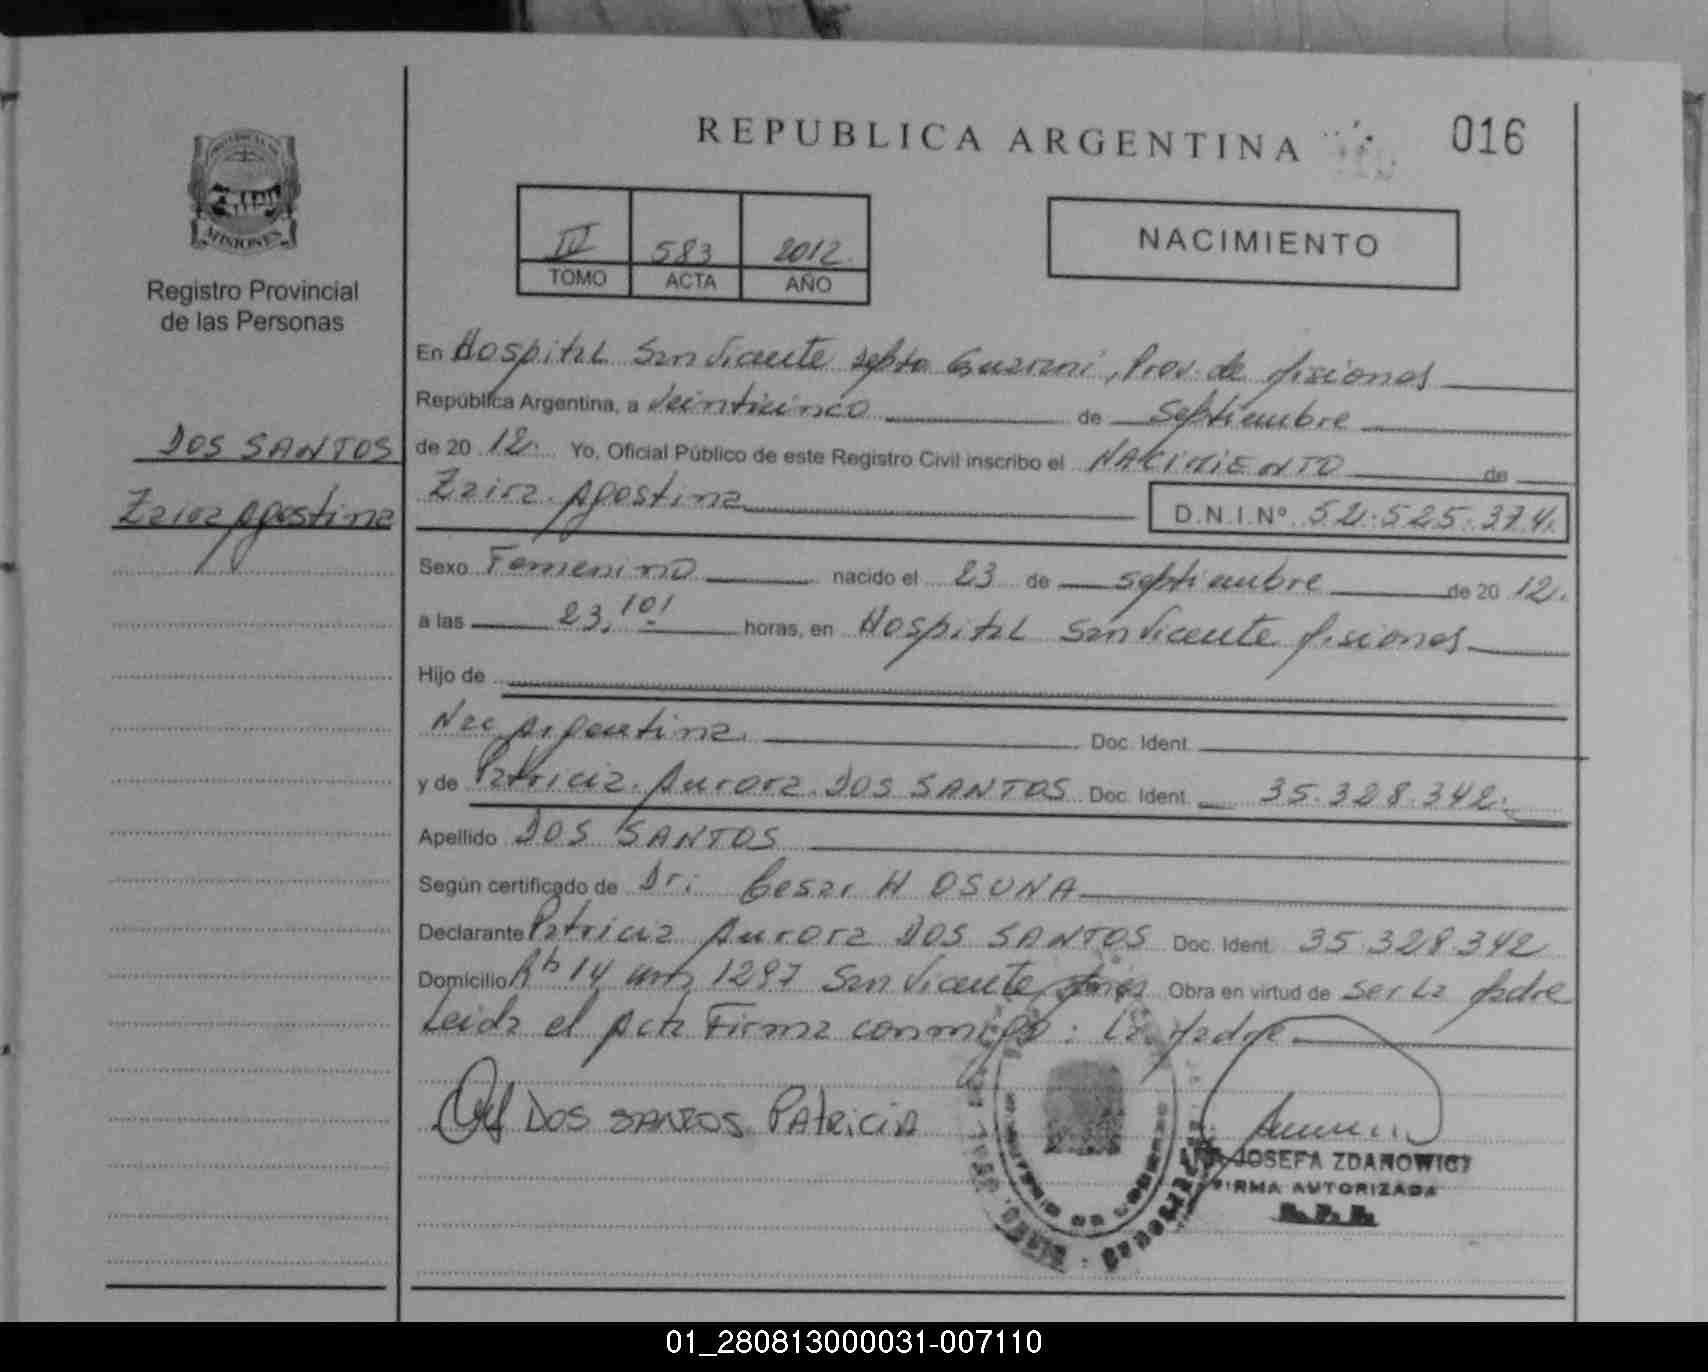 REPUBLICA ARGENTINA
016
MISIONES
Registro Provincial
de las Personas
IV 583 2012
TOMO ACTA AÑO
NACIMIENTO
DOS SANTOS
Zaira Agostina
En Hospital San Vicente Depto Guarani, Prov. de Misiones
República Argentina, a Veinticinco de Septiembre
de 20 12. Yo, Oficial Público de este Registro Civil inscribo el NACIMIENTO de
Zaira Agostina D.N.I.Nº 52.525.374.
Sexo Femenino nacido el 23 de septiembre de 20 12.
a las 23,10' horas, en Hospital San Vicente Misiones
Hijo de
Nac Argentina. Doc. Ident.
y de Patricia Aurora DOS SANTOS Doc. Ident. 35.328.342.
Apellido DOS SANTOS
Según certificado de Dr: Cesar H OSUNA
Declarante Patricia Aurora DOS SANTOS Doc. Ident. 35.328.342
Domicilio 14 1297 San Vicente Obra en virtud de ser La Madre
Leida el Acta Firma conmigo: La Madre
DOS SANTOS Patricia
JOSEFA ZDANOWICZ
FIRMA AUTORIZADA
MINISTERIO DE GOBIERNO
01_280813000031-007110